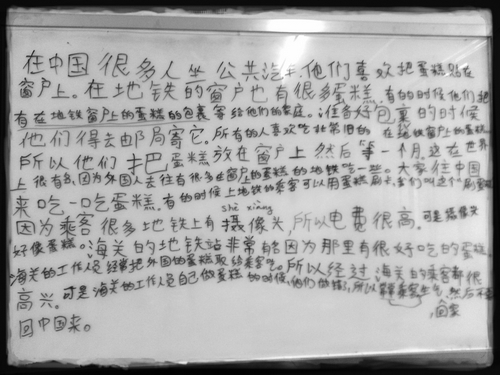 在中国很多人坐公共汽车,他们喜欢把蛋糕贴在
窗户上。在地铁的窗户也有很多蛋糕。有的时候他们把
有在地铁窗户上的蛋糕的包裹寄给他们的家庭。准备好包裹的时候
他们得去邮局寄它。所有的人喜欢吃非常旧的在地铁窗户的蛋糕
所以他们把蛋糕放在窗户上然后等一个月。这在世界
上很有名,因为外国人去往有很多在窗户上的蛋糕的地铁吃一些。大家往中国
来吃一吃蛋糕。有的时候上地铁的乘客可以用蛋糕刷卡,我们叫这个刷蛋糕
shè xiàng
因为乘客很多地铁上有摄像头,所以电费很高。可是摄像头
好像蛋糕。海关的地铁站非常有名因为那里有很好吃的蛋糕,
海关的工作人员经常把外国的蛋糕取给乘客吃。所以经过海关的乘客都很
高兴。可是海关的工作人员自己做蛋糕的时候,他们做错,所以乘客生气,然后不
回中国来。